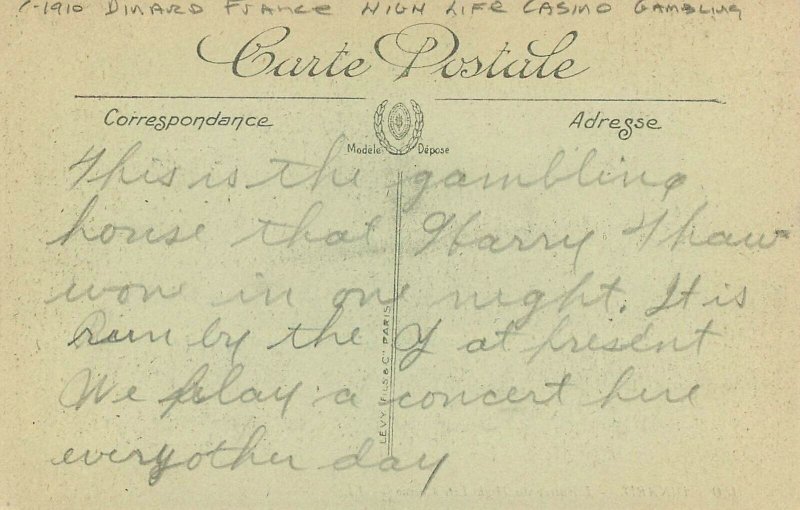 -1910 DINARD FRANCE HIGH LIFE CASINO GAMBLING
Carte Postale
Correspondance
Adresse
Modèle Déposé
This is the gambling
house that Harry Thaw
won in one night. It is
Run by the Y at present
We play a concert here
everyother day
LEVY FILS & Cie PARIS